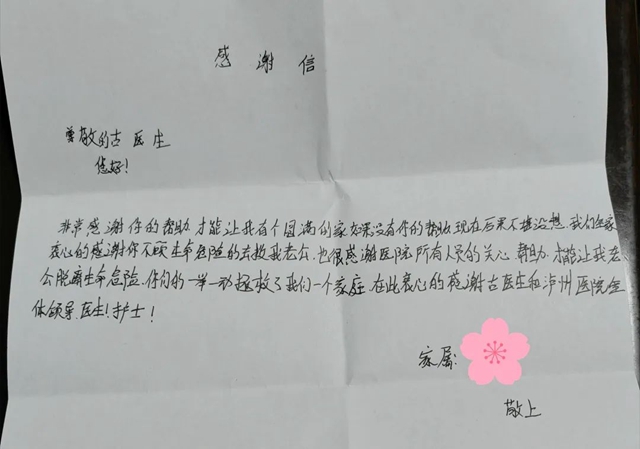 感谢信
尊敬的古医生
您好！
非常感谢你的帮助，才能让我有个圆满的家如果没有你的帮助，现在后果不堪没想，我们全家
衷心的感谢你不顾生命危险的去救我老公，也很感谢医院所有人员的关心，帮助，才能让我老
公脱离生命危险，你们的一举一动拯救了我们一个家庭，在此衷心的感谢古医生和泸州医院全
体领导、医生！护士！
家属：
敬上